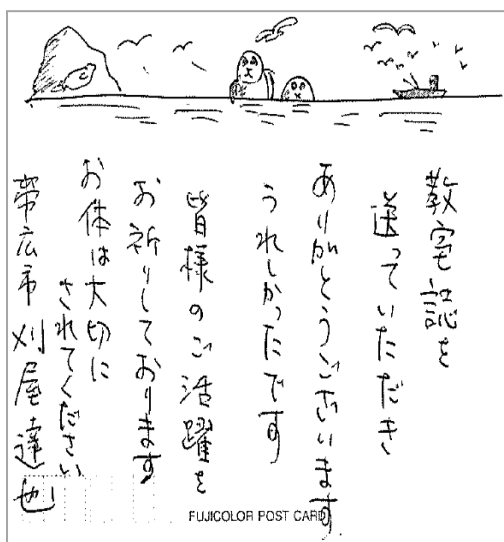 教室誌を
送っていただき
ありがとうございます
うれしかったです
皆様のご活躍を
お祈りしております
お体は大切に
されてください
帯広市 刈屋達也
FUJICOLOR POST CARD